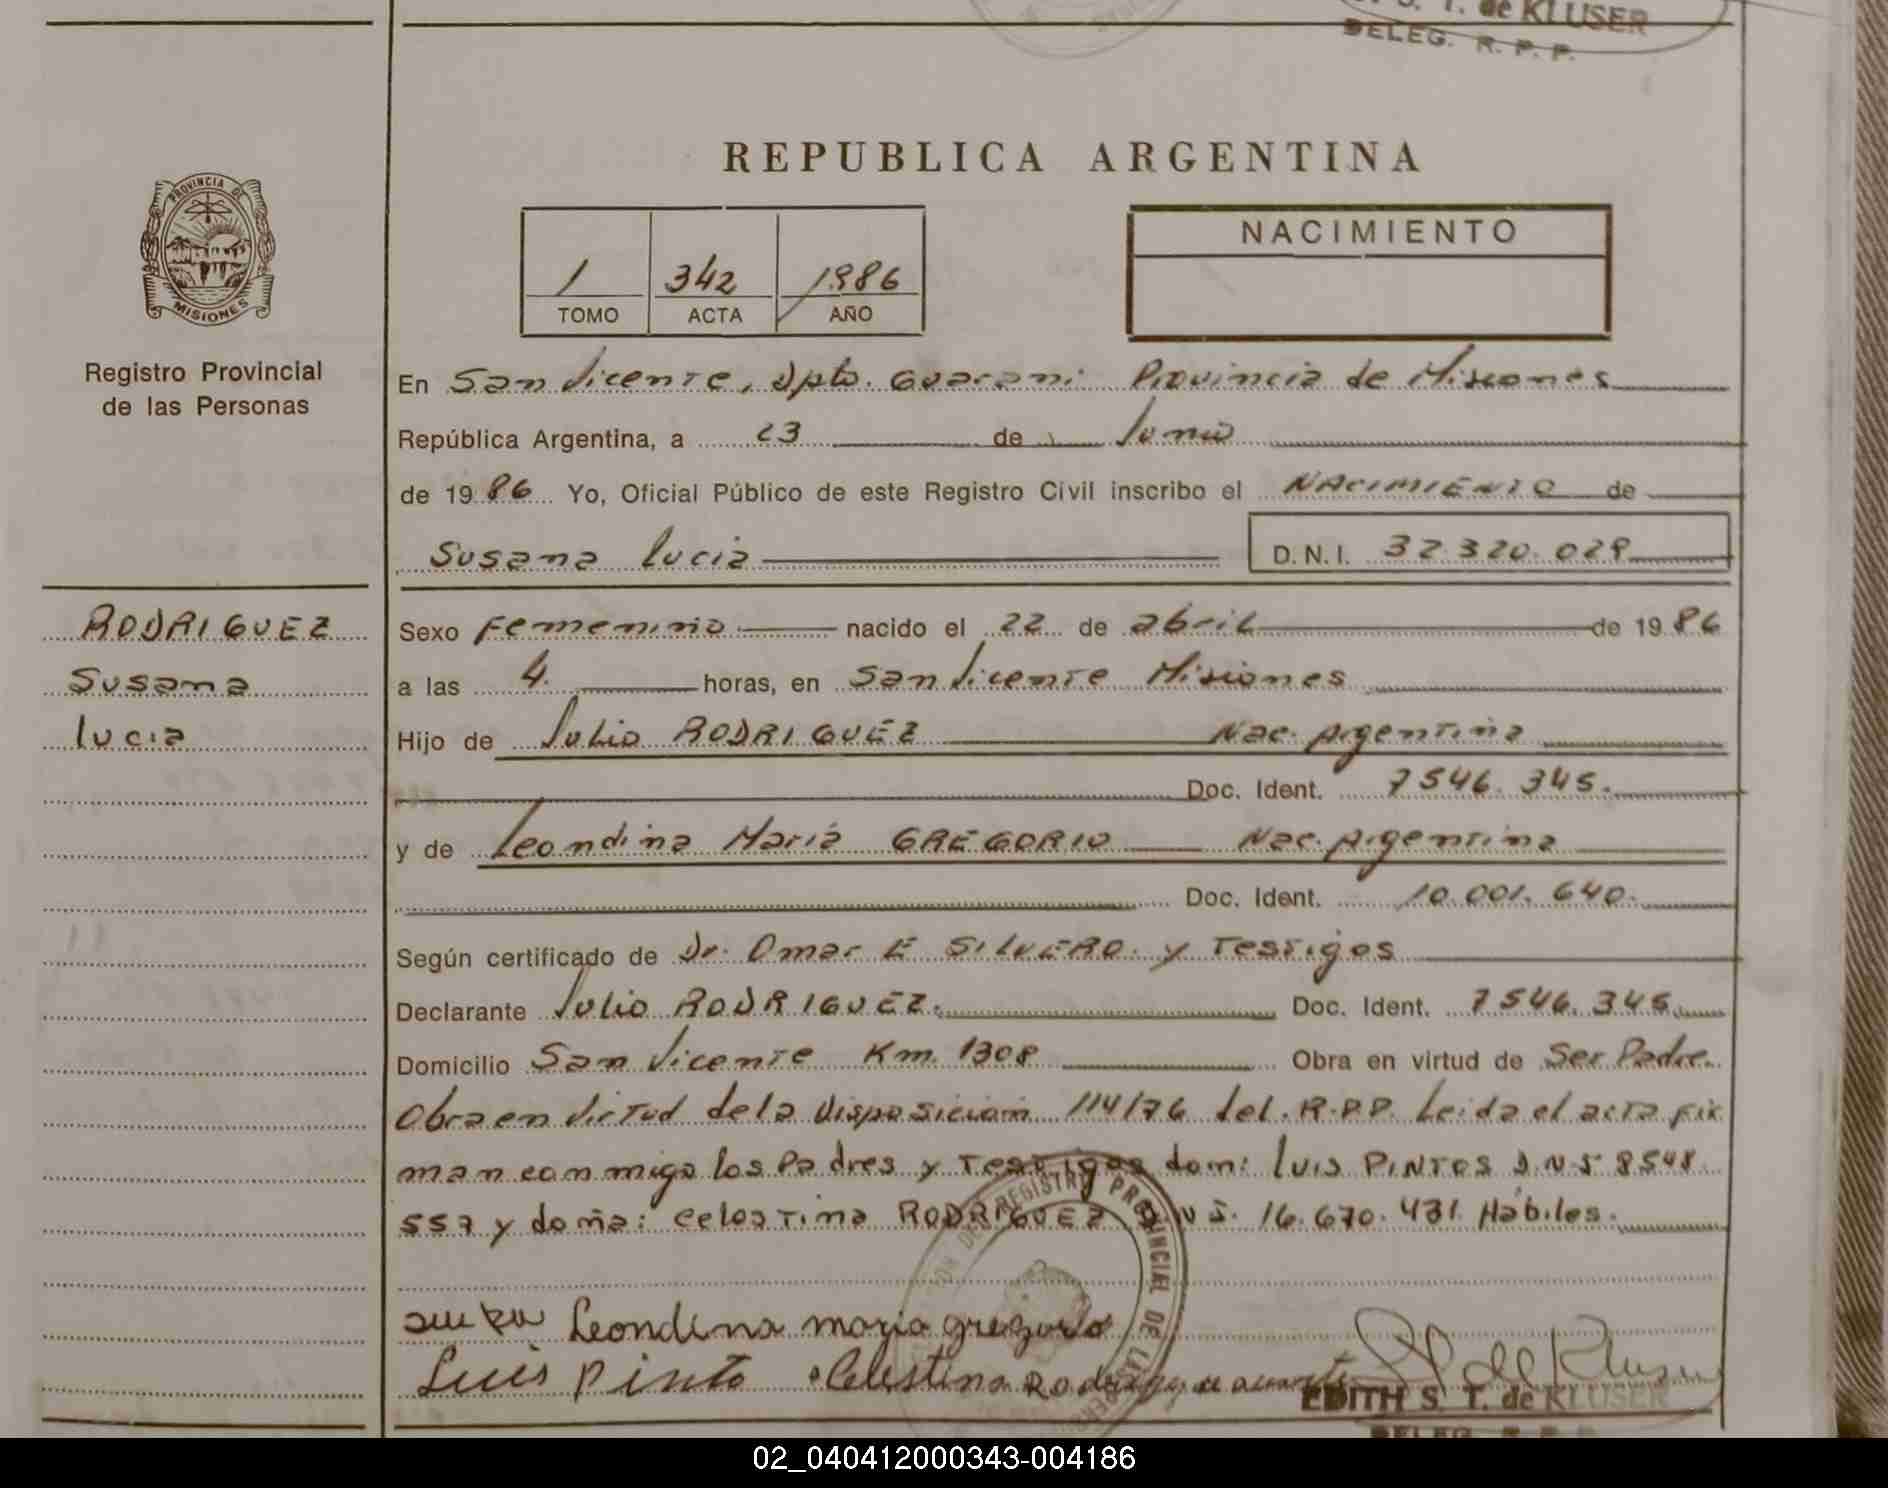 T. de KLUSER
DELEG. R. P. P.
REPUBLICA ARGENTINA
PROVINCIA DE
MISIONES
1 342 1986
TOMO ACTA AÑO
NACIMIENTO
Registro Provincial
de las Personas
En San Vicente, Dpto. Guarani Provincia de Misiones
República Argentina, a 23 de Junio
de 1986 Yo, Oficial Público de este Registro Civil inscribo el NACIMIENTO de
Susana Lucia D.N.I. 32.320.029
RODRIGUEZ
Susana
Lucia
Sexo Femenino nacido el 22 de abril de 1986
a las 4. horas, en San Vicente Misiones
Hijo de Julio RODRIGUEZ Nac. Argentina
Doc. Ident. 7546.345.
y de Leondina Maria GREGORIO Nac. Argentina
Doc. Ident. 10.001.640.
Según certificado de Dr. Omar E SILVERO. y Testigos
Declarante Julio RODRIGUEZ. Doc. Ident. 7546.345.
Domicilio San Vicente Km. 1308 Obra en virtud de Ser Padre.
Obra en Virtud de la Disposicion 114/76 del. R.P.P. Leida el acta fir
man conmigo los Padres y Testigos don: Luis PINTOS D.N.I 8548
557 y doña: Celestina RODRIGUEZ D.N.I. 16.670.431. Hábiles.
Leondina maria gregorio
Luis Pinto Celestina Rodriguez
EDITH S. T. de KLUSER
REGISTRO PROVINCIAL DE LAS PERSONAS
02_040412000343-004186